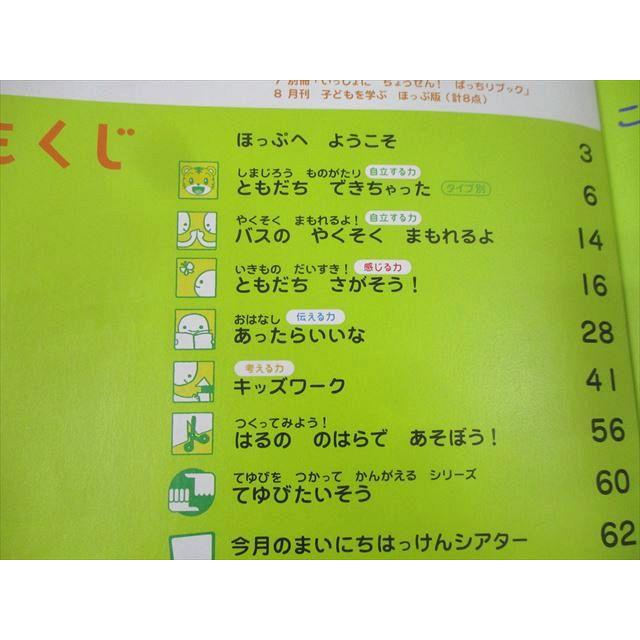 7 別冊「いっしょに ちょうせん! ばっちりブック」
8 月刊 子どもを学ぶ ほっぷ版(計8点)
もくじ
ほっぷへ ようこそ 3
しまじろう ものがたり 自立する力
ともだち できちゃった タイプ別 6
やくそく まもれるよ! 自立する力
バスの やくそく まもれるよ 14
いきもの だいすき! 感じる力
ともだち さがそう! 16
おはなし 伝える力
あったらいいな 28
考える力
キッズワーク 41
つくってみよう!
はるの のはらで あそぼう! 56
てゆびを つかって かんがえる シリーズ
てゆびたいそう 60
今月のまいにちはっけんシアター 62